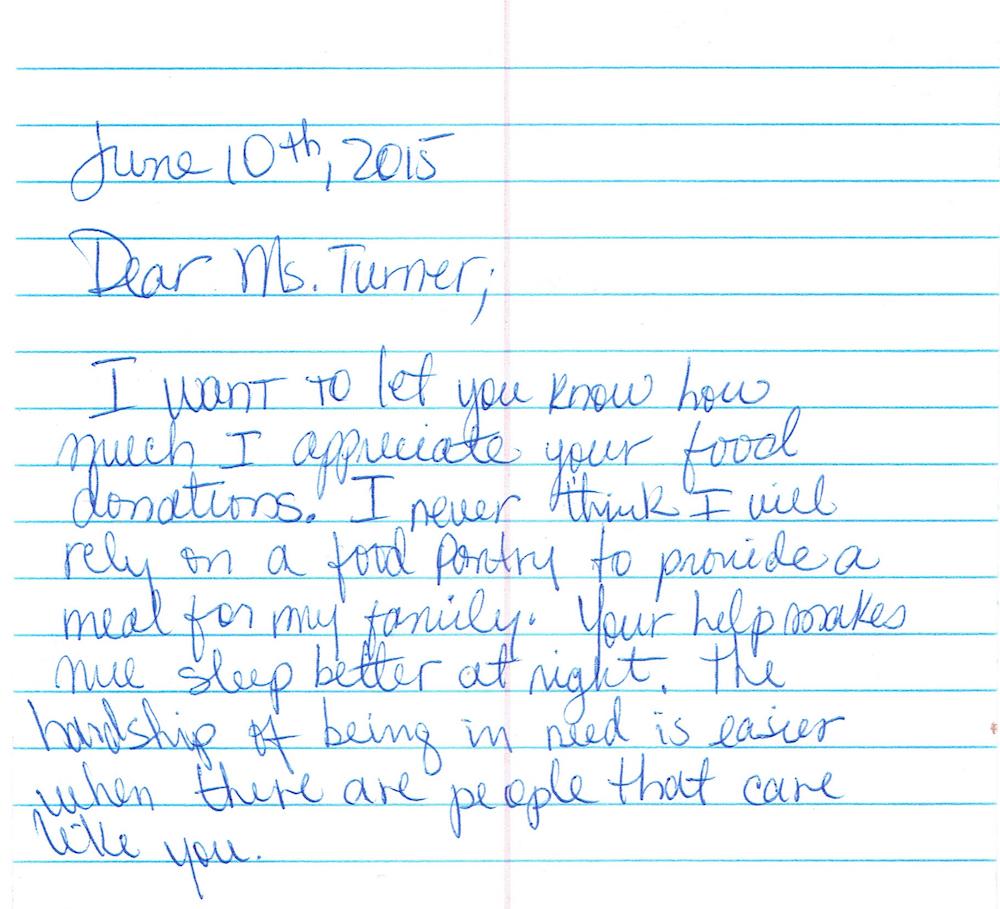 June 10th, 2015
Dear Ms. Turner;
I want to let you know how
much I appreciate your food
donations. I never think I will
rely on a food pantry to provide a
meal for my family. Your help makes
me sleep better at night. The
hardship of being in need is easier
when there are people that care
like you.